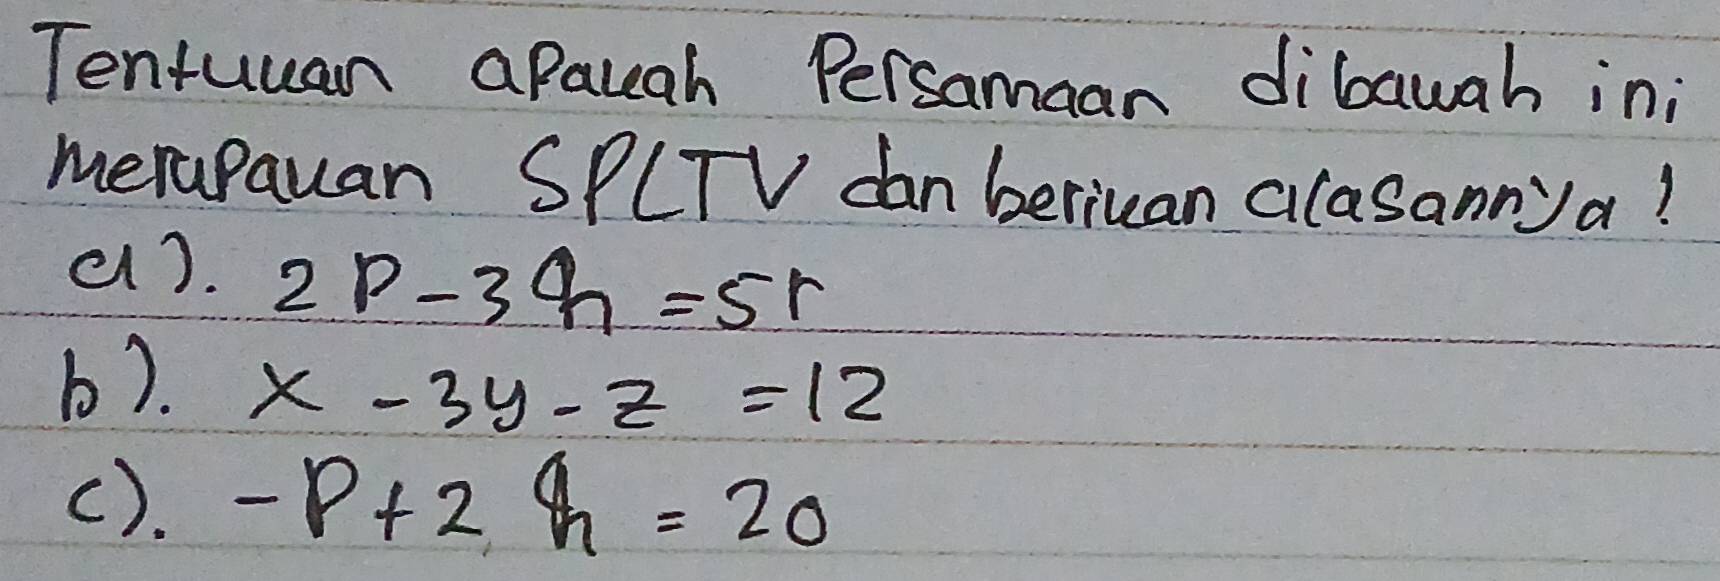 Tentukan apakah Persamaan dibawah ini
merupakan SPLTV dan berikan alasannya!
a). 2P-3q =5r
b). x -3y-z =12
c). -P+2q = 20